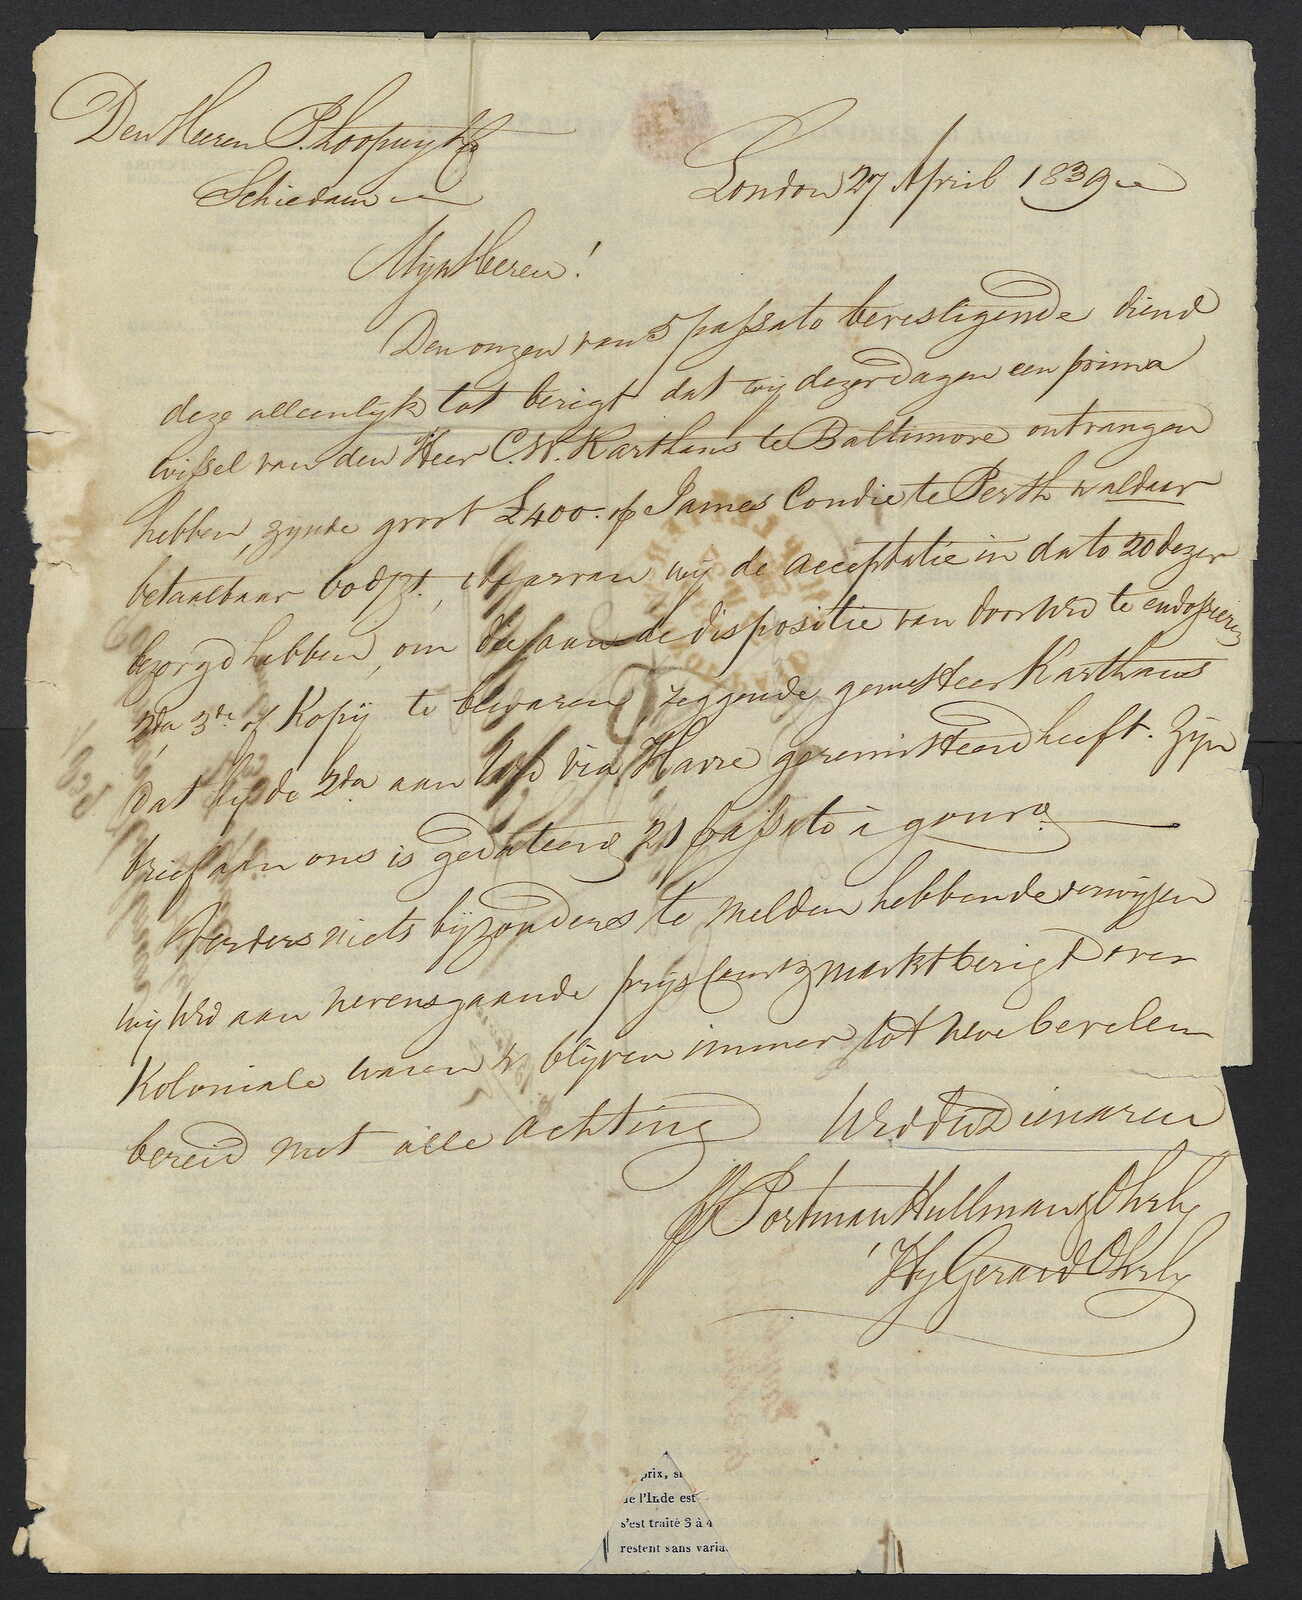 Den Heeren P. Loopuyt & Co
Schiedam
London 27 April 1839
Mijn Heeren!
Den onzen van 5 passato bevestigende diend
deze alleenlijk tot berigt dat wij dezer dagen een prima
wissel van den Heer C.W. Karthaus te Baltimore ontvangen
hebben, zijnde groot £400. op James Condie te Perth
betaalbaar 60 d/zt, waarvan wij de acceptatie in dato 20 dezer
bezorgd hebben, om die aan de dispositie van door WEd te endosseeren
2da 3de of Kopij te bewaren, zeggende gem. Heer Karthaus
dat hij de 2da aan WEd via Havre geremitteerd heeft. Zijn
brief aan ons is gedateerd 21 passato
Verders niets bijzonders te melden hebbende verwijzen
wij WEd aan nevensgaande prijs Courant & marktberigt over
Koloniale waren & blijven immer tot Uwe bevelen
bereid met alle achting
WEd DWD Dienaren
pp Portman Hullman & Ohrly
Hy Gerard Ohrly
prix, si
de l'Inde est
s'est traité 3 à 4
restent sans varia